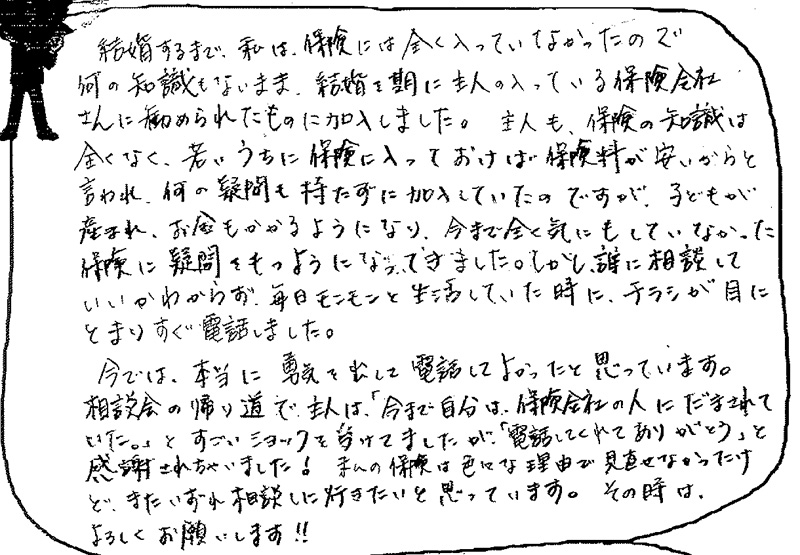 結婚するまで、私は、保険には全く入っていなかったので
何の知識もないまま、結婚を期に主人の入っている保険会社
さんに勧められたものに加入しました。 主人も、保険の知識は
全くなく、若いうちに保険に入っておけば保険料が安いからと
言われ、何の疑問も持たずに加入していたのですが、子どもが
産まれ、お金もかかるようになり、今まで全く気にもしていなかった
保険に疑問をもつようになってきました。しかし、誰に相談して
いいかわからず、毎日モンモンと生活していた時に、チラシが目に
とまりすぐ電話しました。
今では、本当に勇気を出して電話してよかったと思っています。
相談会の帰り道で、主人は、「今まで自分は、保険会社の人にだまされて
いた。」とすごいショックを受けてましたが、「電話してくれてありがとう」と
感謝されちゃいました! 主人の保険は色々な理由で見直せなかったけ
ど、またいずれ相談しに行きたいと思っています。 その時は、
よろしくお願いします!!